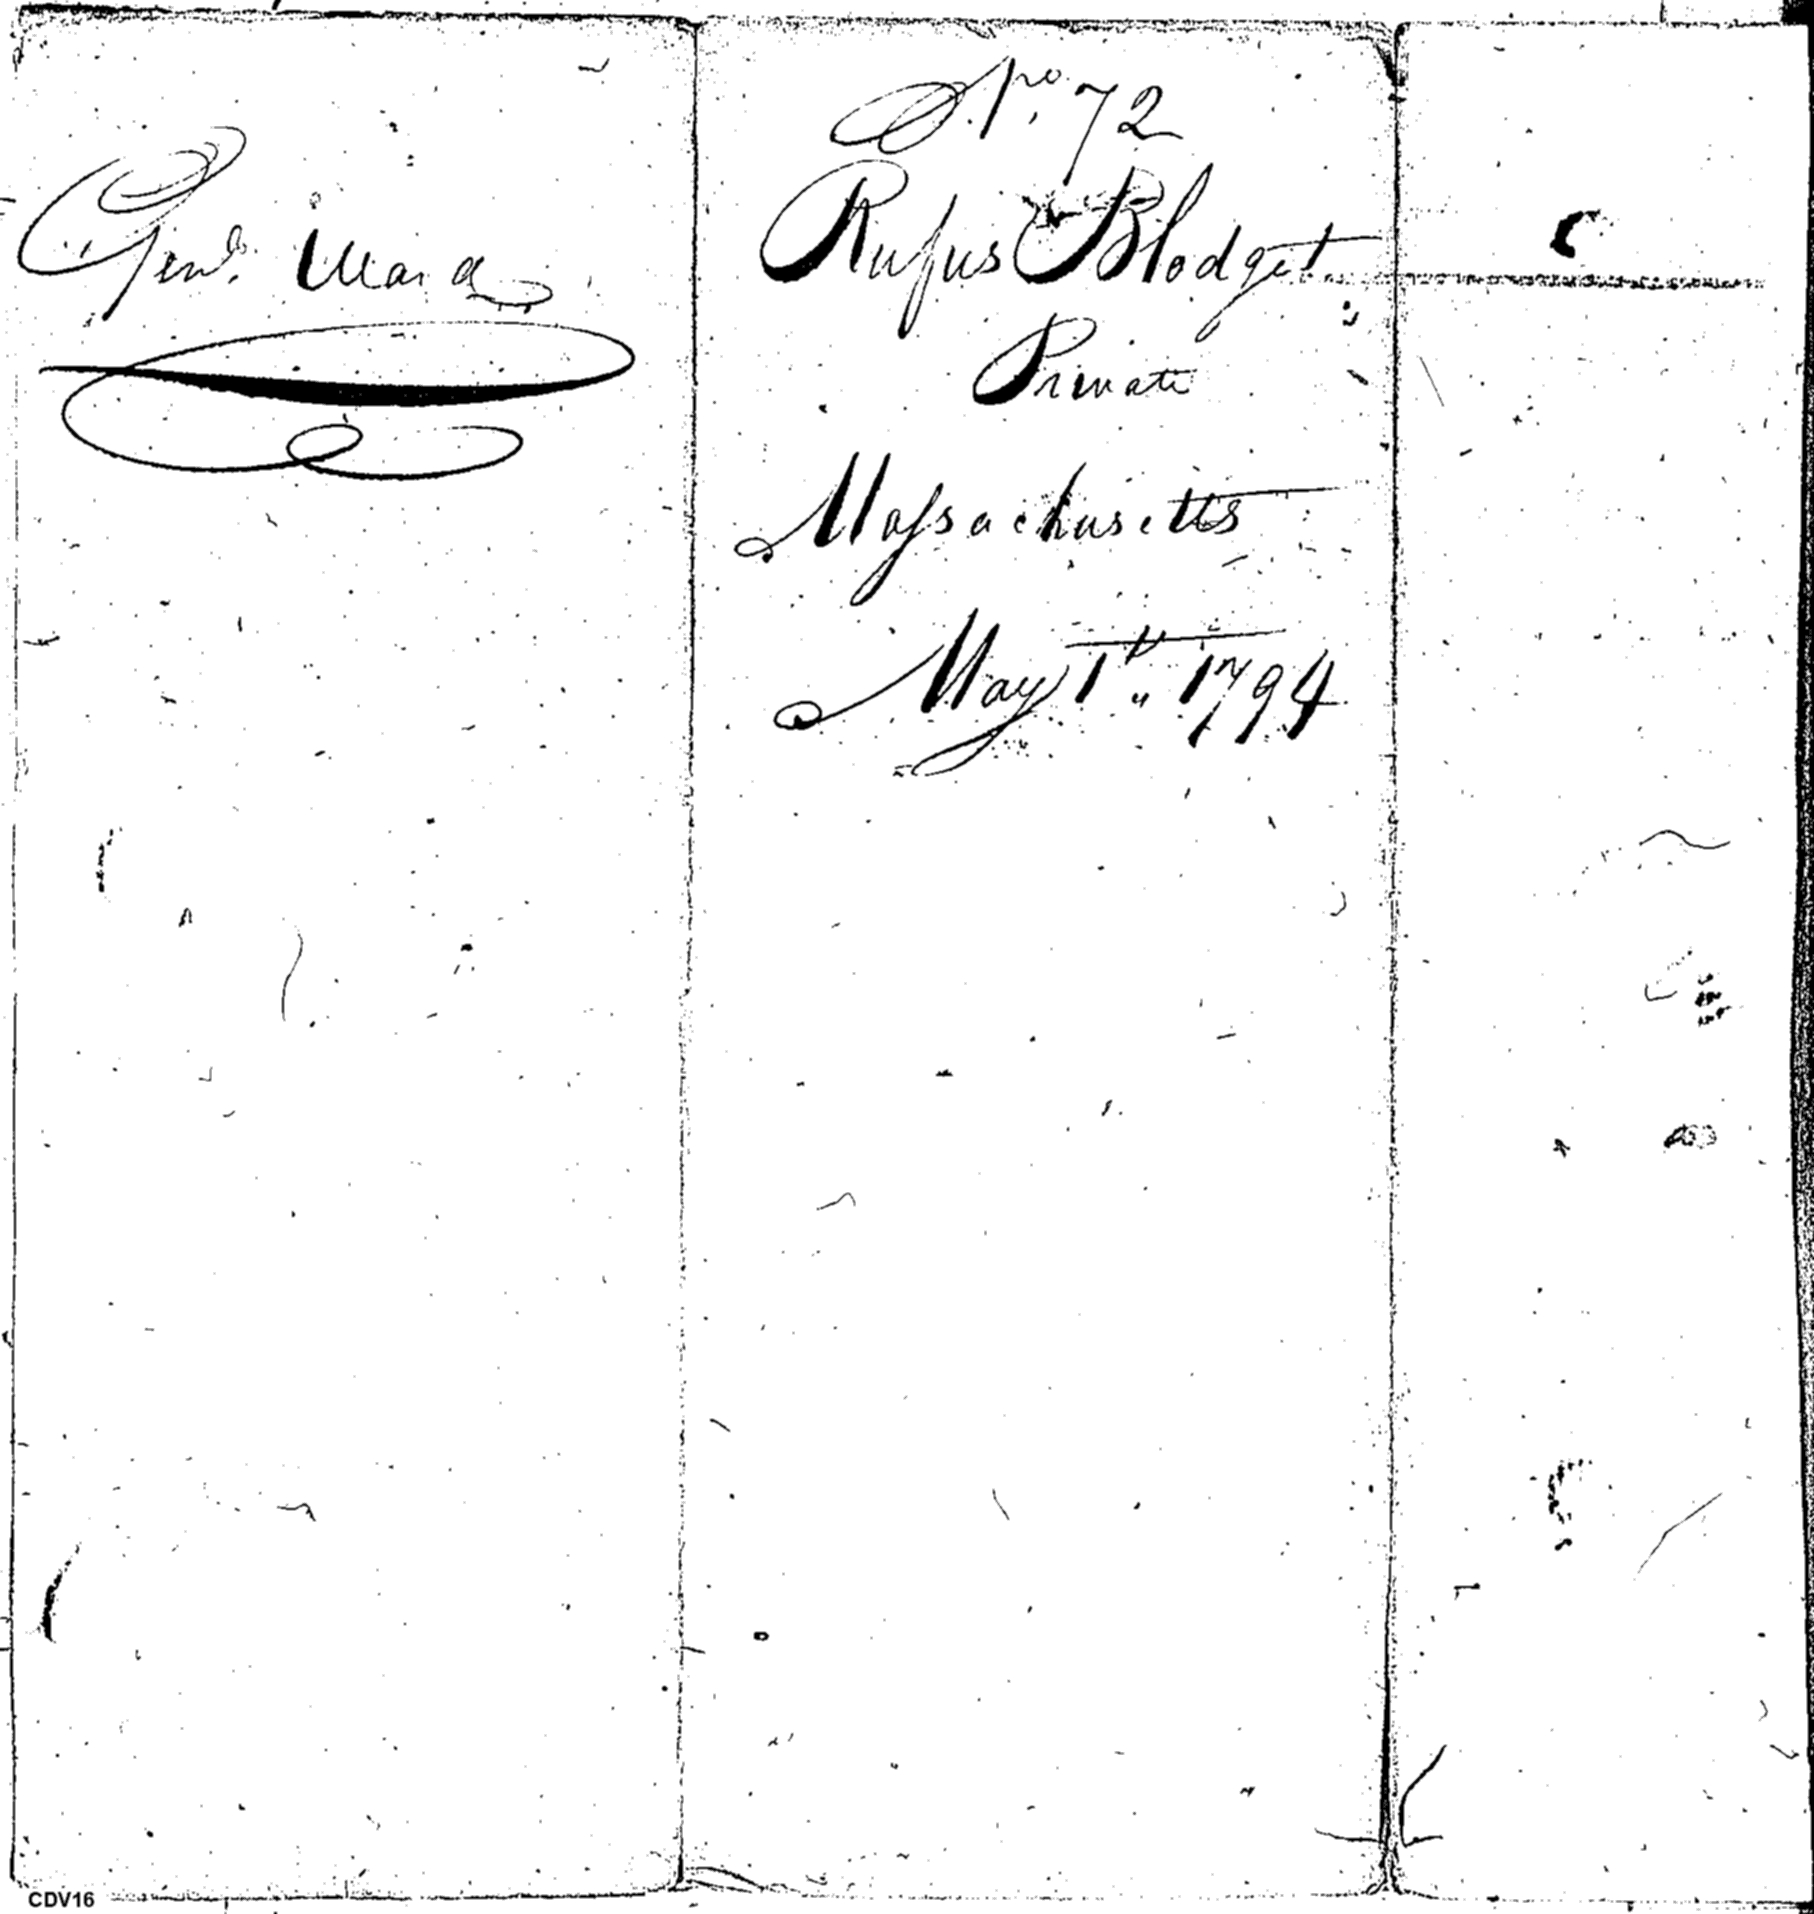 Genl. Ward
No. 72
Rufus Blodget
Private
Massachusetts
May 1st 1794
CDV16